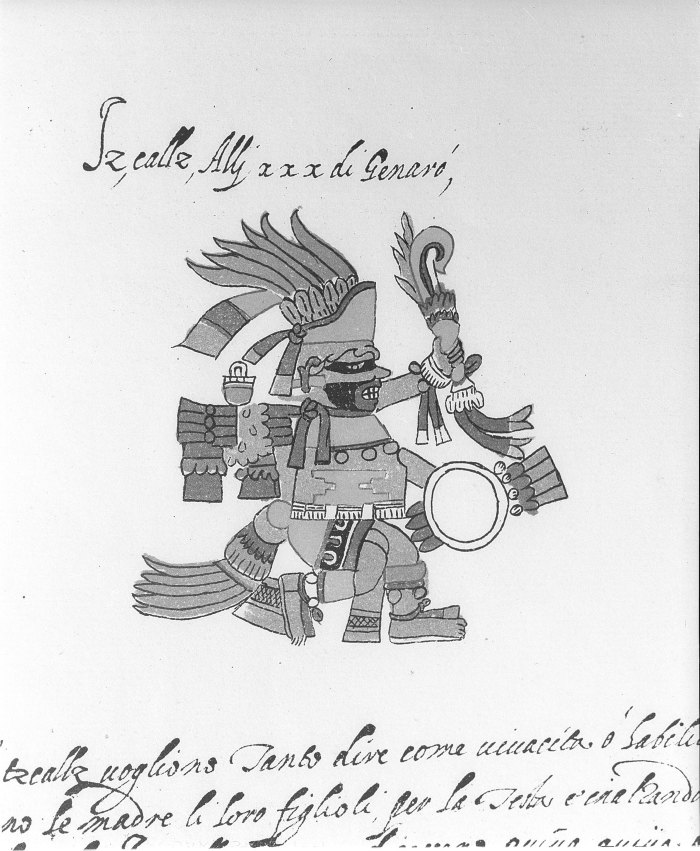 Iz,callz, Alij xxx di Genaró,
tzcallz voglions Tanto dire come vivacita ó labili
no le madre li loro figlioli, per la Testa e inalzand